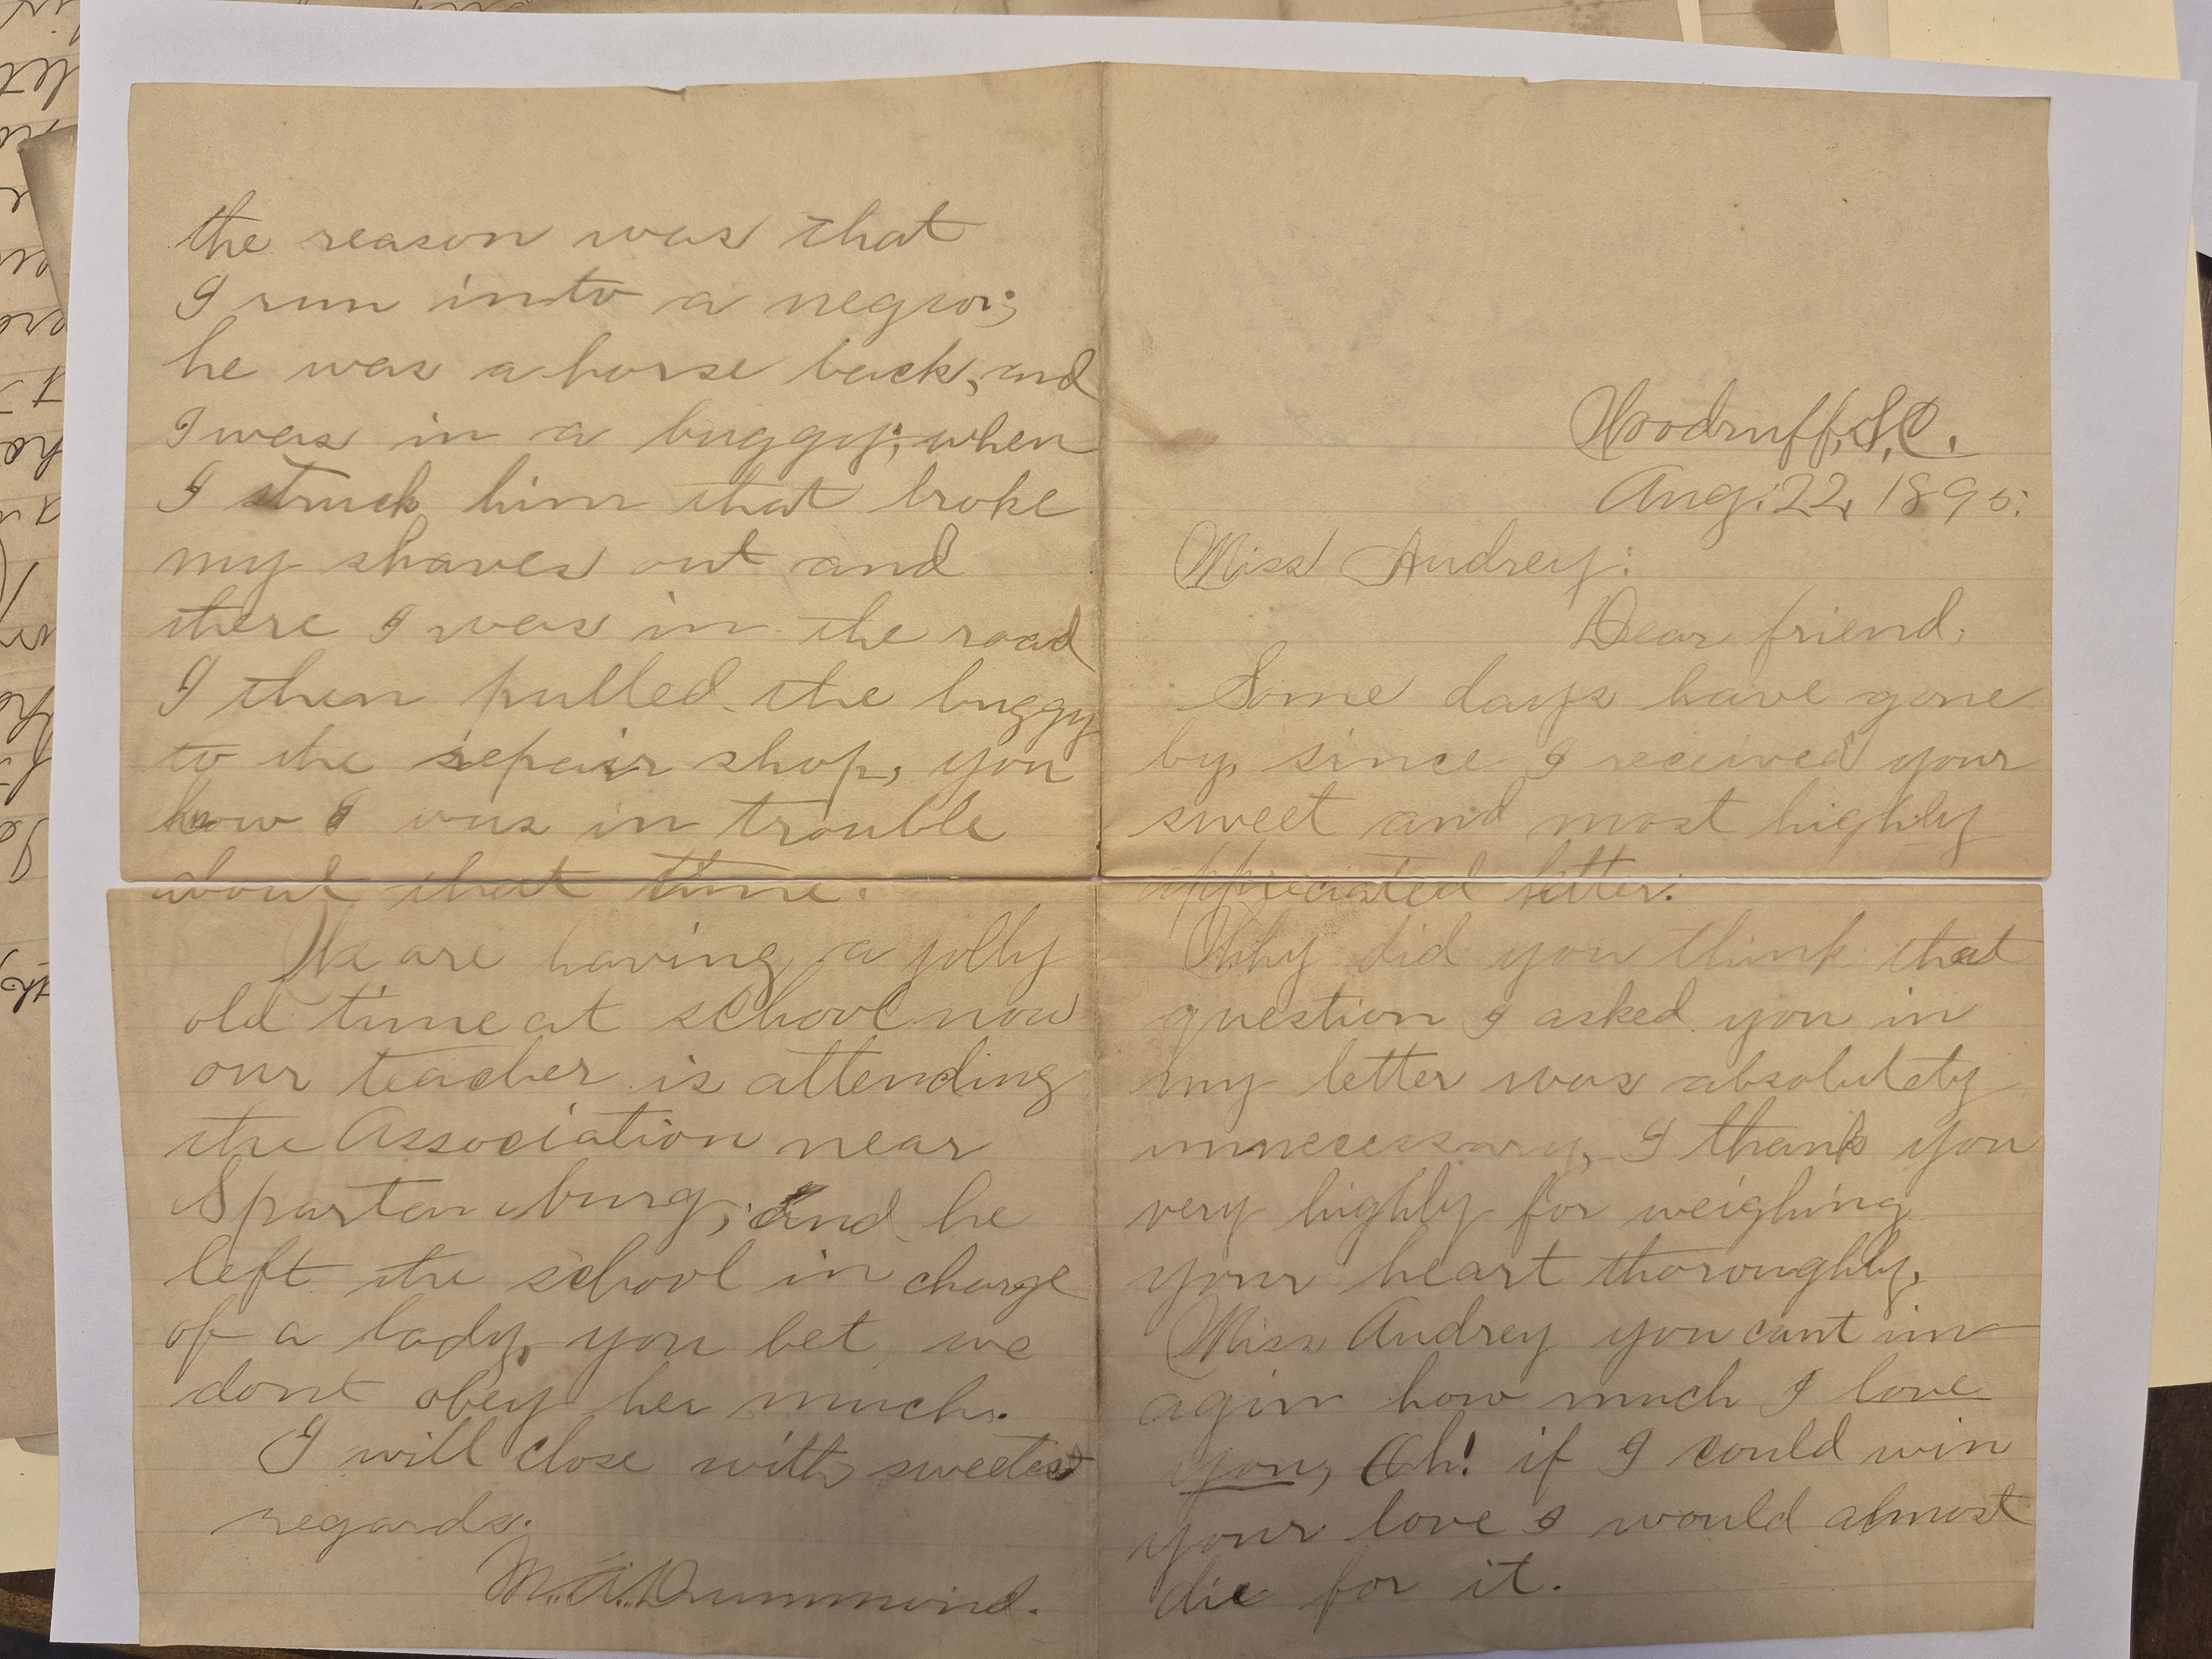 Woodruff, S.C.
Aug. 22, 1895.
Miss Audrey:
Dear friend,
Some days have gone
by, since I received your
sweet and most highly
appreciated letter.
Why did you think that
question I asked you in
my letter was absolutety
unnecessary, I thank you
very highly for weighing
your heart thoroughly,
Miss Audrey you cant im
agin how much I love
you, Oh! if I could win
your love I would almost
die for it.
the reason was that
I run into a negro;
he was a horse back, and
I was in a buggy; when
I struck him that broke
my shaves out and
there I was in the road
I then pulled the buggy
to the repair shop, you
know I was in trouble
about that time.
We are having a jolly
old time at school now
our teacher is attending
the Association near
Spartanburg, and he
left the school in charge
of a lady, you bet we
dont obey her much.
I will close with sweetest
regards.
M. A. Drummond.